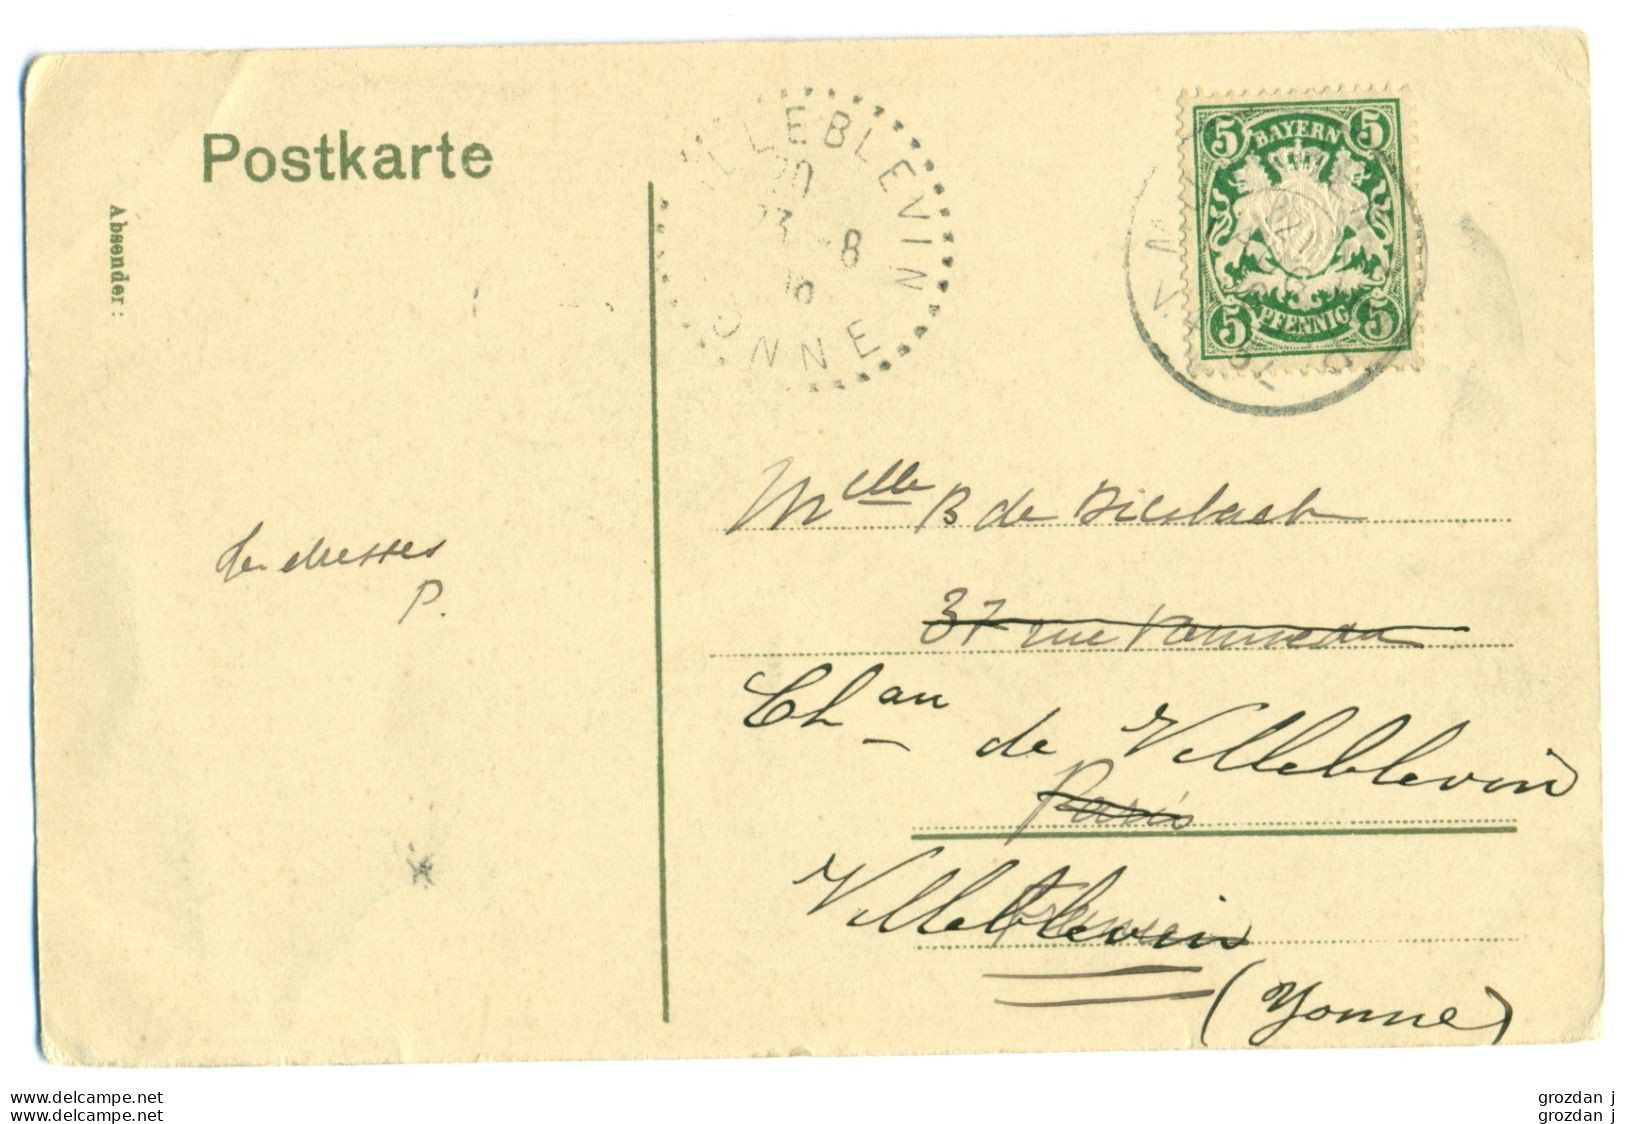 Postkarte
Absender:
VILLEBLEVIN
20
23 - 8
YONNE
5 BAYERN 5
5 PFENNIG 5
Melle B de Diesbach
37 rue Vanneau
Chau de Villeblevin
Paris
Villeblevin
(Yonne)
P.
www.delcampe.net
www.delcampe.net
grozdan j
grozdan j